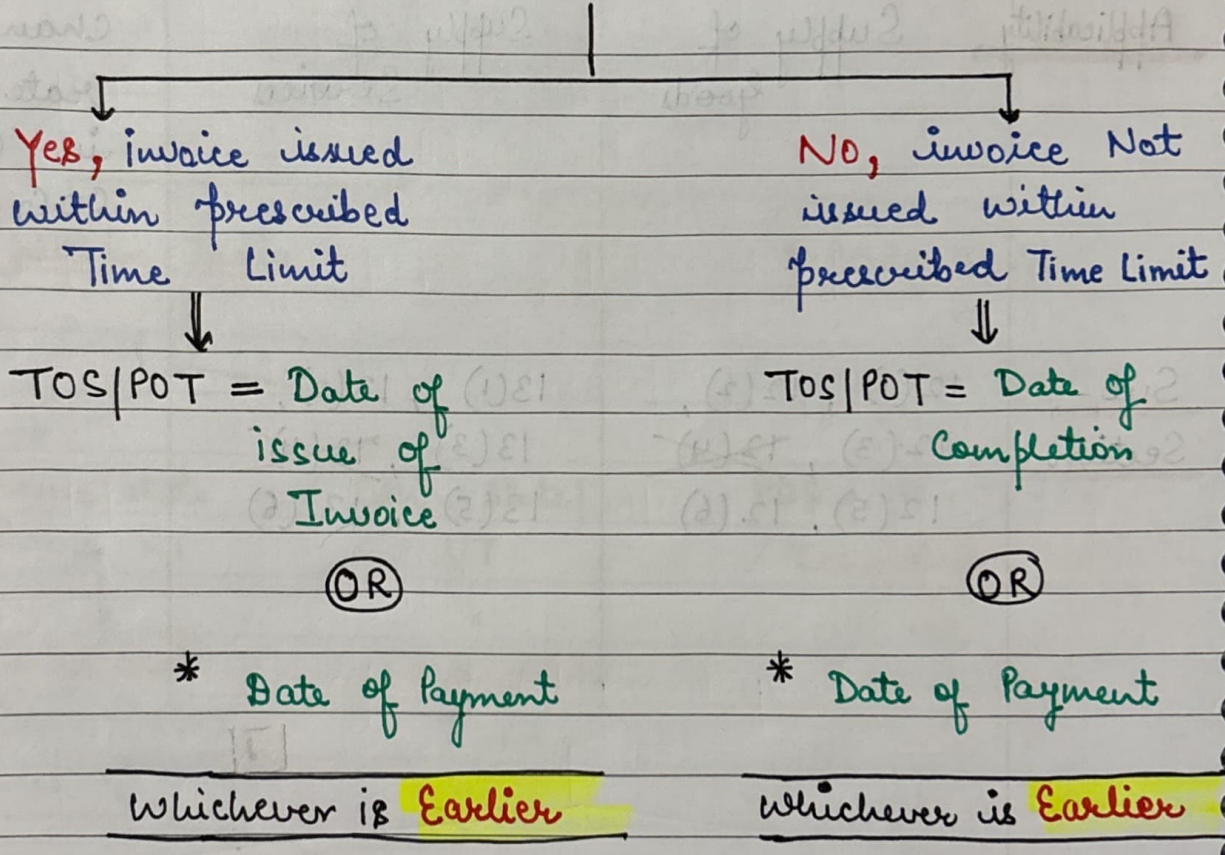 Yes, invoice issued
within prescribed
Time Limit
TOS/POT = Date of
issue of
Invoice
OR
* Date of Payment
whichever is Earlier
No, invoice Not
issued within
prescribed Time Limit
TOS/POT = Date of
Completion
OR
* Date of Payment
whichever is Earlier